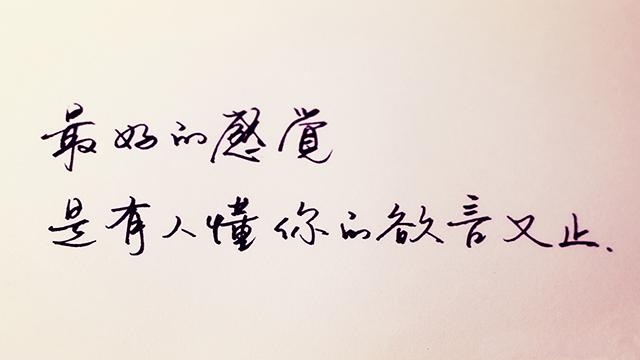 最好的感觉
是有人懂你的欲言又止.